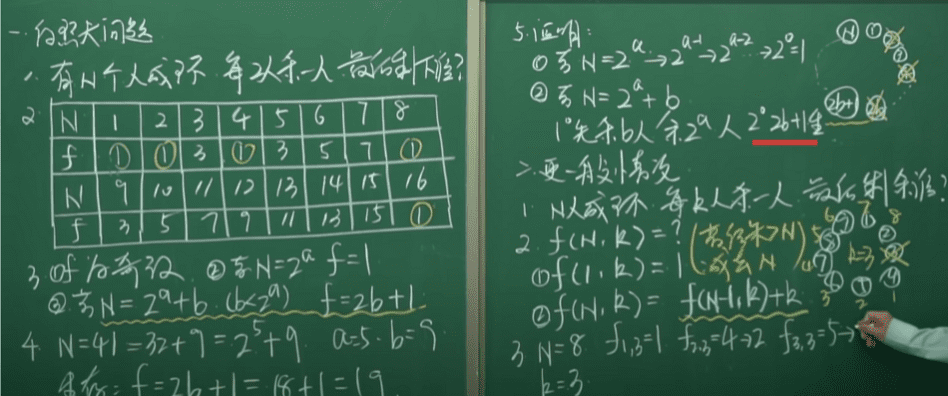 一.约瑟夫问题
1. 有N个人成环 每2人杀一人 最后剩下谁?
2.
N 1 2 3 4 5 6 7 8
f ① ① 3 ① 3 5 7 ①
N 9 10 11 12 13 14 15 16
f 3 5 7 9 11 13 15 ①
3 ①f为奇数 ②若N=2ᵃ f=1
③若N=2ᵃ+b (b<2ᵃ) f=2b+1
4. N=41=32+9=2⁵+9 a=5. b=9
f=2b+1=18+1=19
5.证明:
①若N=2ᵃ→2ᵃ⁻¹→2ᵃ⁻²→2⁰=1
②若N=2ᵃ+b
1°先杀b人 余2ᵃ人 2°2b+1生
N 1 2 3
2b+1 2b
二.更一般的情况
1. N人成环 每k人杀一人 最后剩余谁?
2. f(N,k)=? (若结果>N 减去N)
①f(1,k)=1
②f(N,k)=f(N-1,k)+k
k=3
3 N=8 f₁,₃=1 f₂,₃=4→2 f₃,₃=5→
k=3